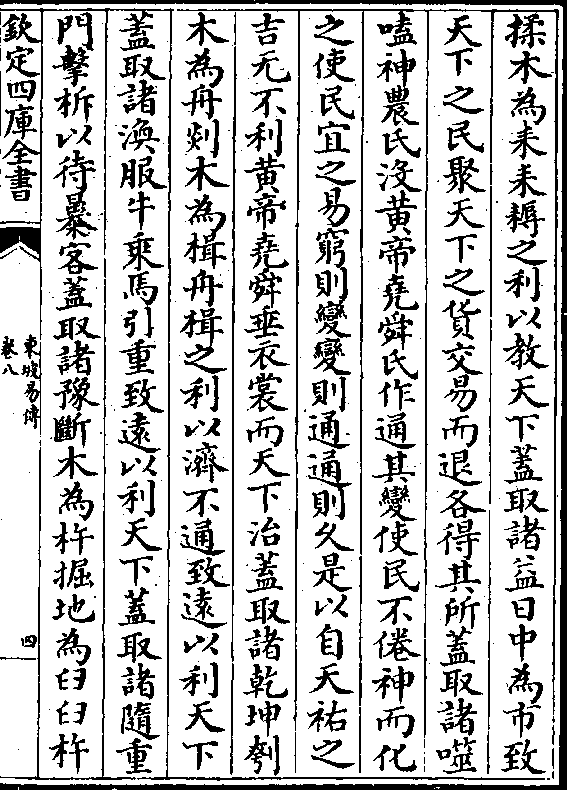 揉木為耒耒耨之利以教天下蓋取諸益日中為市致
天下之民聚天下之貨交易而退各得其所蓋取諸噬
嗑神農氏沒黃帝堯舜氏作通其變使民不倦神而化
之使民宜之易窮則變變則通通則久是以自天祐之
吉无不利黃帝堯舜垂衣裳而天下治蓋取諸乾坤刳
木為舟剡木為楫舟楫之利以濟不通致遠以利天下
蓋取諸渙服牛乘馬引重致遠以利天下蓋取諸隨重
門擊柝以待暴客蓋取諸豫斷木為杵掘地為臼臼杵
欽定四庫全書
東坡易傳
卷八
四